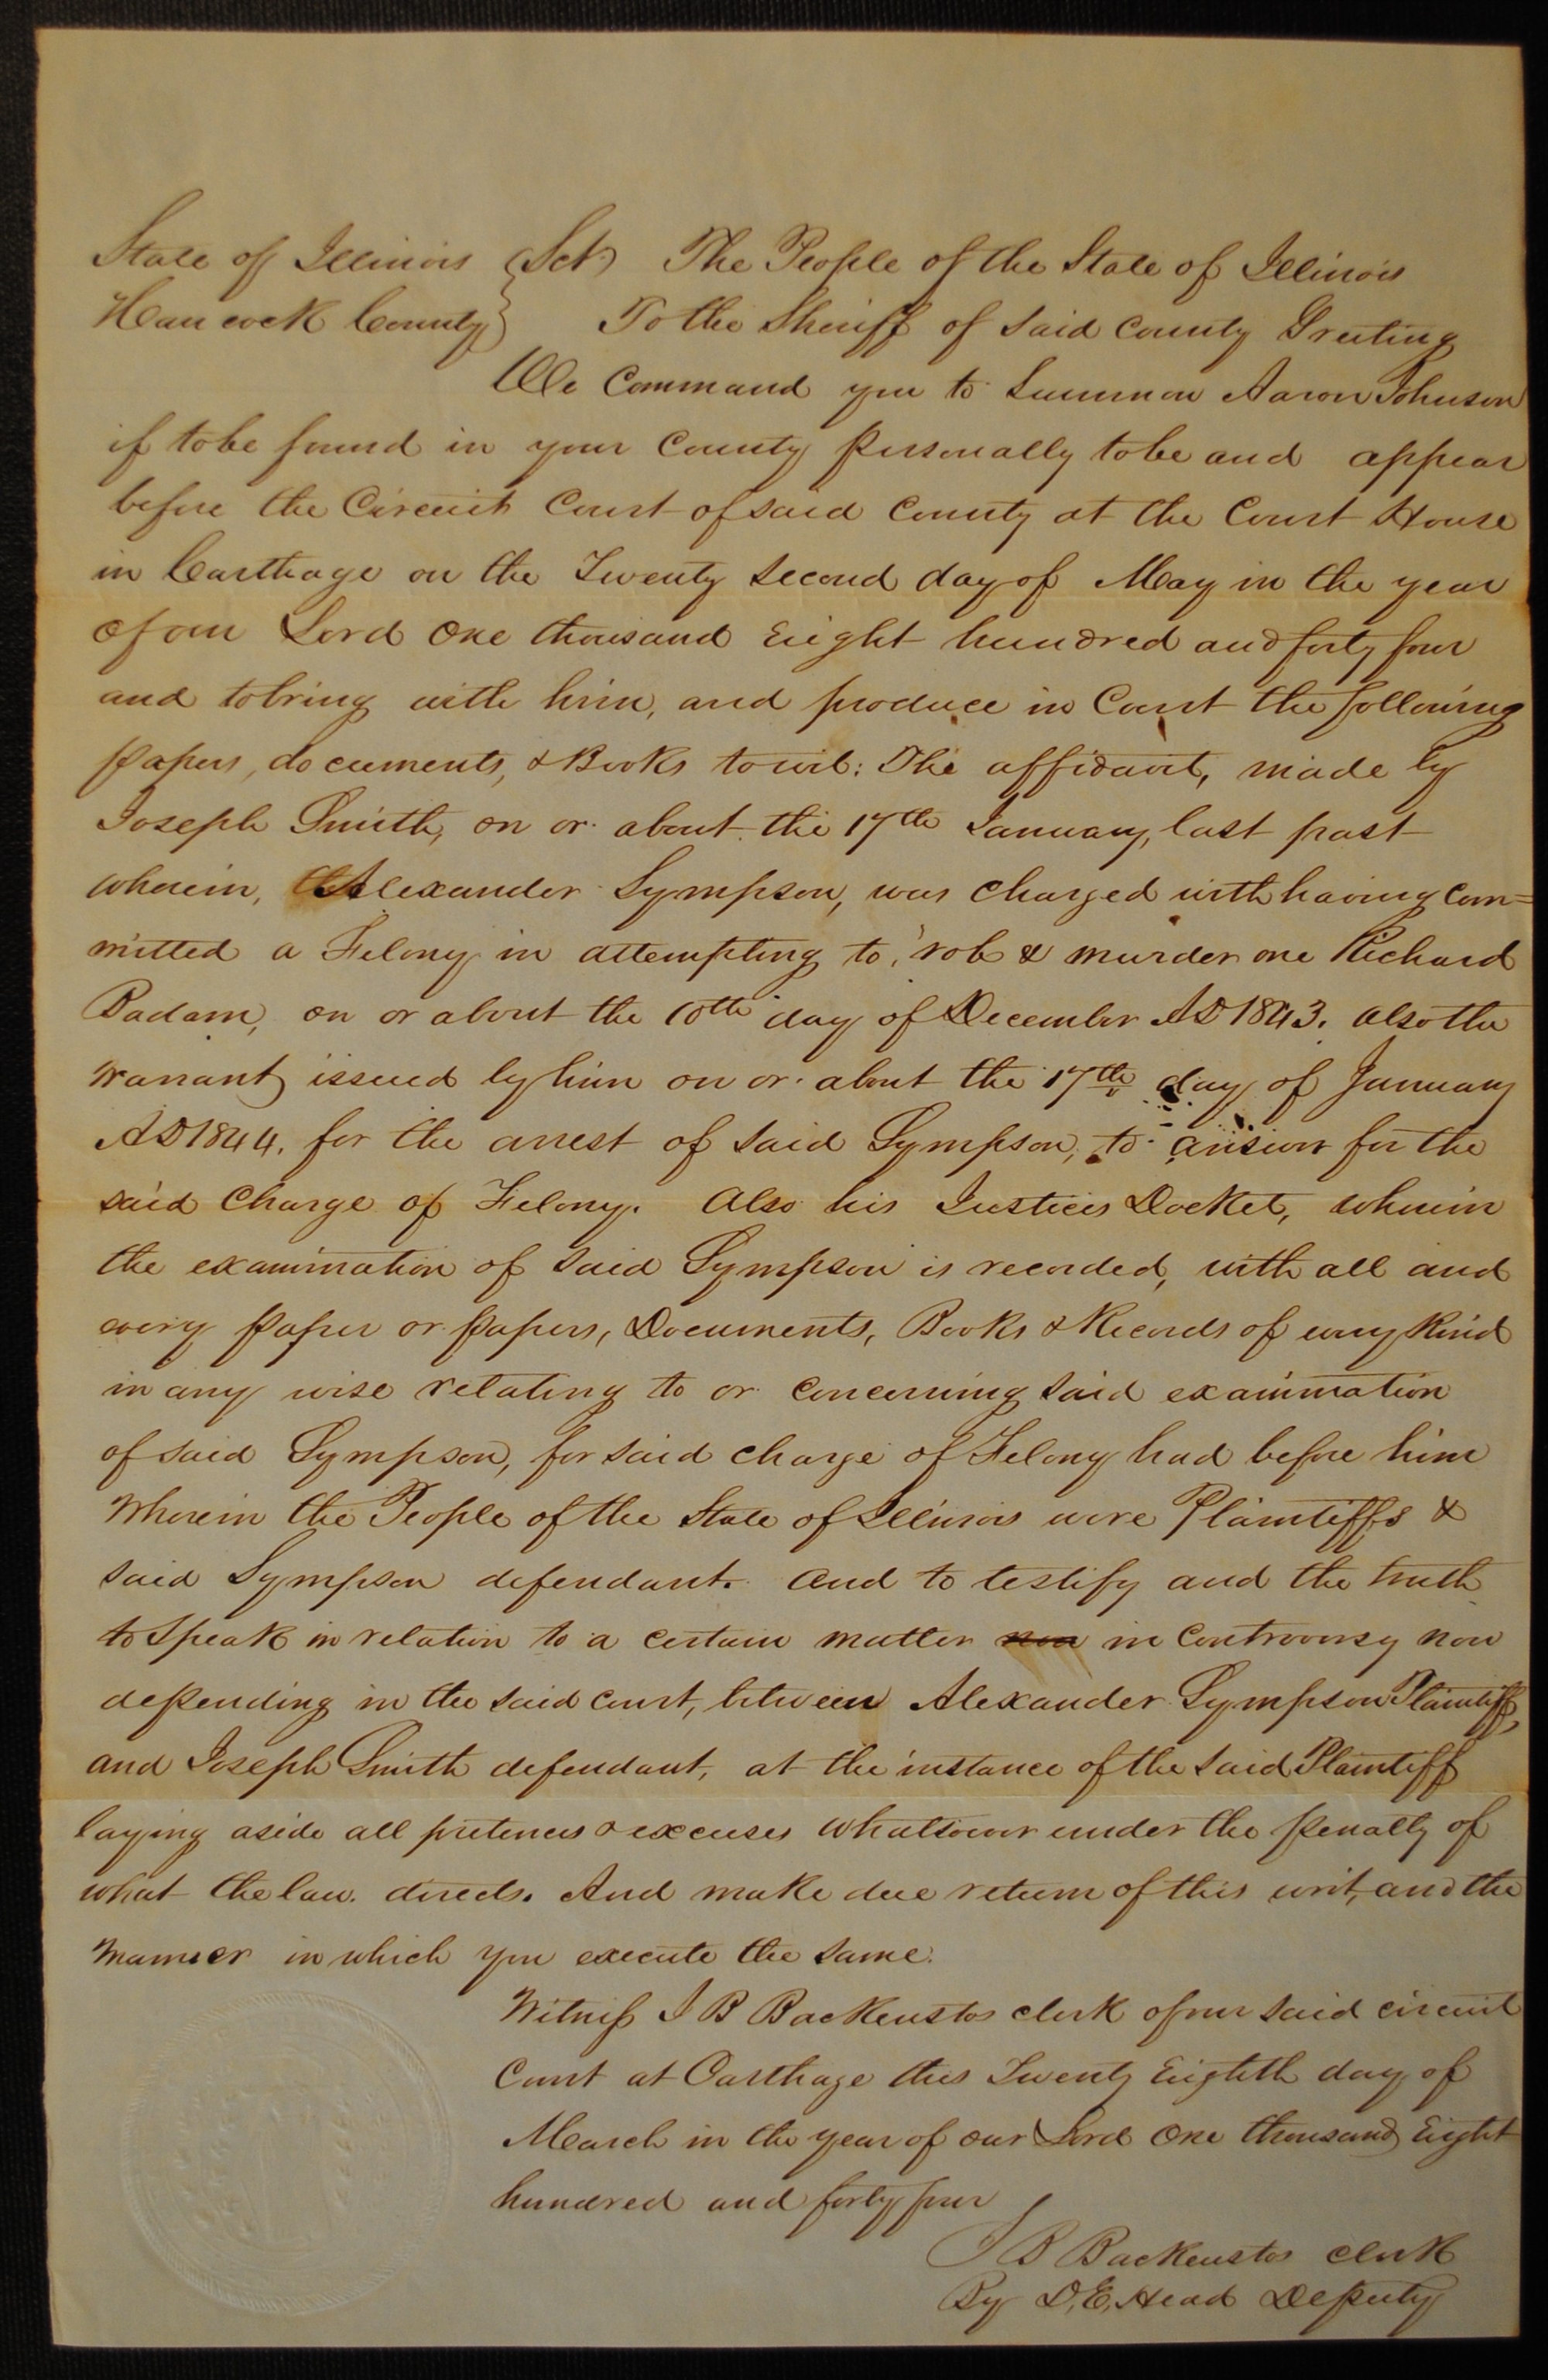 State of Illinois } Sct The People of the State of Illinois
Hancock County } To the Sheriff of said County Greeting
We Command you to Summon Aaron Johnson
if to be found in your County personally to be and appear
before the Circuit Court of said County at the Court House
in Carthage on the Twenty Second day of May in the year
of our Lord One thousand Eight hundred and forty four
and to bring with him, and produce in Court the following
papers, documents, & Books towit: The affidavit, made by
Joseph Smith, on or about the 17th January, last past
wherein, Alexander Sympson, was charged with having com=
mitted a Felony in attempting to rob & murder one Richard
Badam, on or about the 10th day of December AD 1843. also the
warrant issued by him on or about the 17th day of January
AD 1844. for the arrest of said Sympson, to answer for the
said Charge of Felony. Also his Justices Docket, wherein
the examination of said Sympson is recorded, with all and
every paper or papers, Documents, Books & Records of every Kind
in any wise relating to or concerning said examination
of said Sympson, for said charge of Felony had before him
Wherein the People of the State of Illinois were Plaintiffs &
said Sympson defendant. And to testify and the truth
to speak in relation to a certain matter now in Controversy now
depending in the said court, between Alexander Sympson Plaintiff,
and Joseph Smith defendant, at the instance of the said Plaintiff
laying aside all pretences & excuses whatsoever under the penalty of
what the law directs. And make due return of this writ, and the
manner in which you execute the same.
Witness J B Backenstos clerk of our said circuit
Court at Carthage this Twenty Eighth day of
March in the year of our Lord One thousand Eight
hundred and forty four
J B Backenstos Clerk
By D. E. Head Deputy